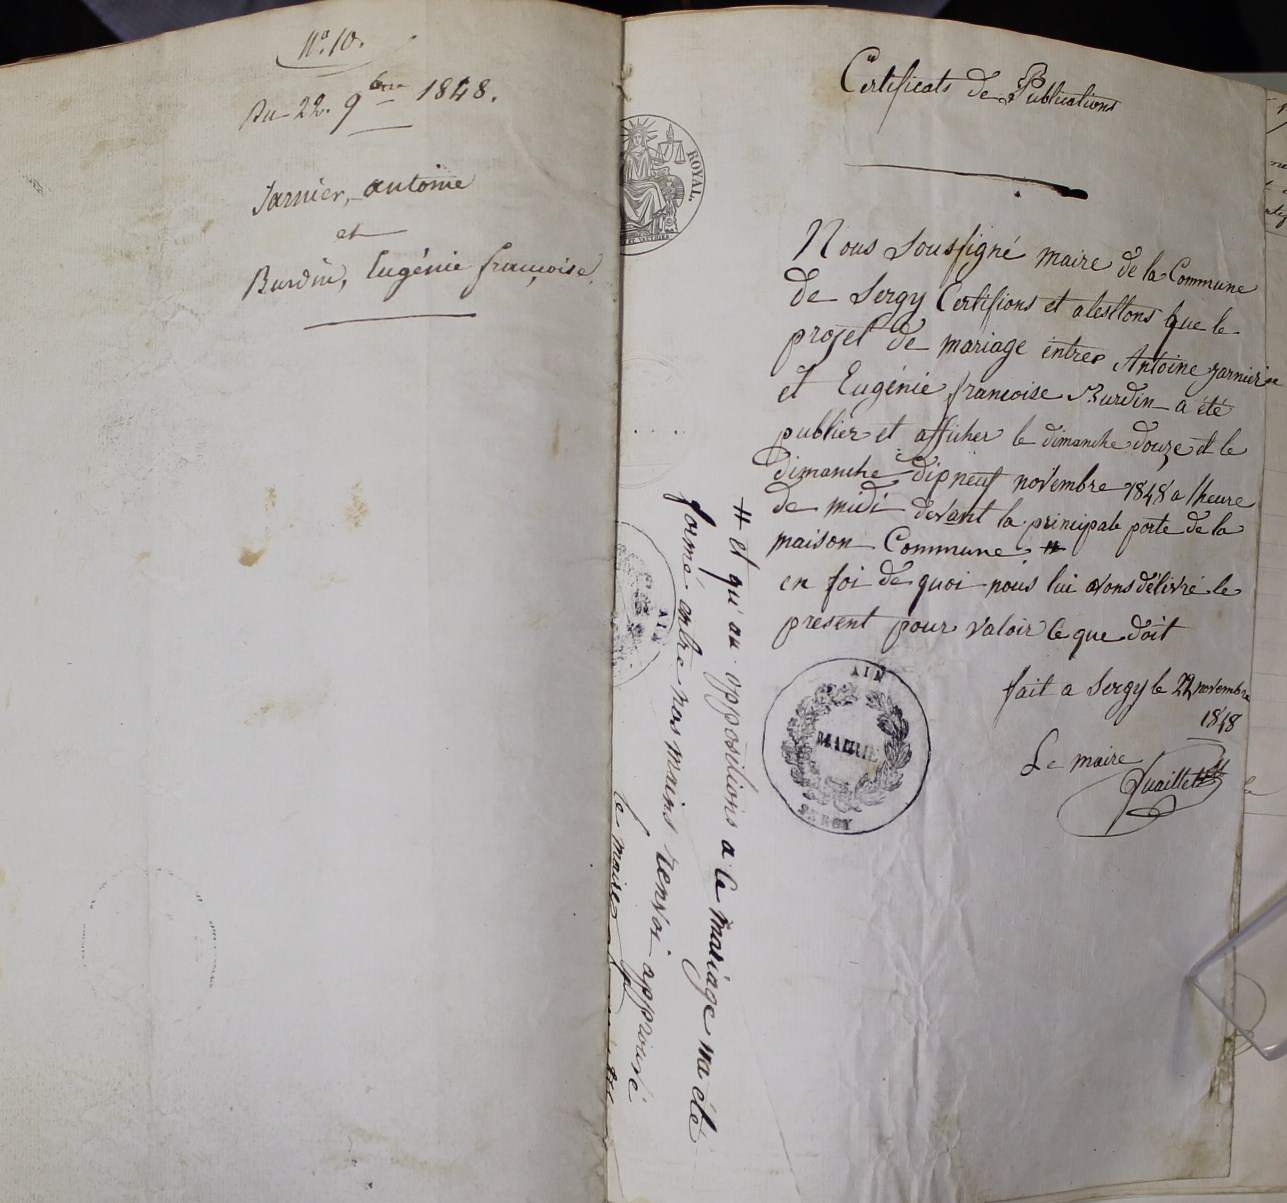 N.º 10.
Du 22. 9bre 1848.
Jarnier, antoine
et
Burdin, Eugénie françoise.
ROYAL.
Certificats de Publications
Nous Soussigné maire de la Commune
de Sergy Certifions et atesttons que le
projet de mariage entre Antoine Jarnier
et Eugénie françoise Burdin a été
publier et afficher le dimanche douze et le
dimanche dipneuf novembre 1848 a lheure
de midi devant la principale porte de la
maison Commune #
en foi de quoi nous lui avons délivré le
present pour valoir ce que doit
fait a Sergy le 22 novembre
1848
Le maire
AIN
MAIRIE
SERGY
AIN
# et qu'au oppositions a ce mariage na été
formé entre nos mains renvoi approuvé
le maire